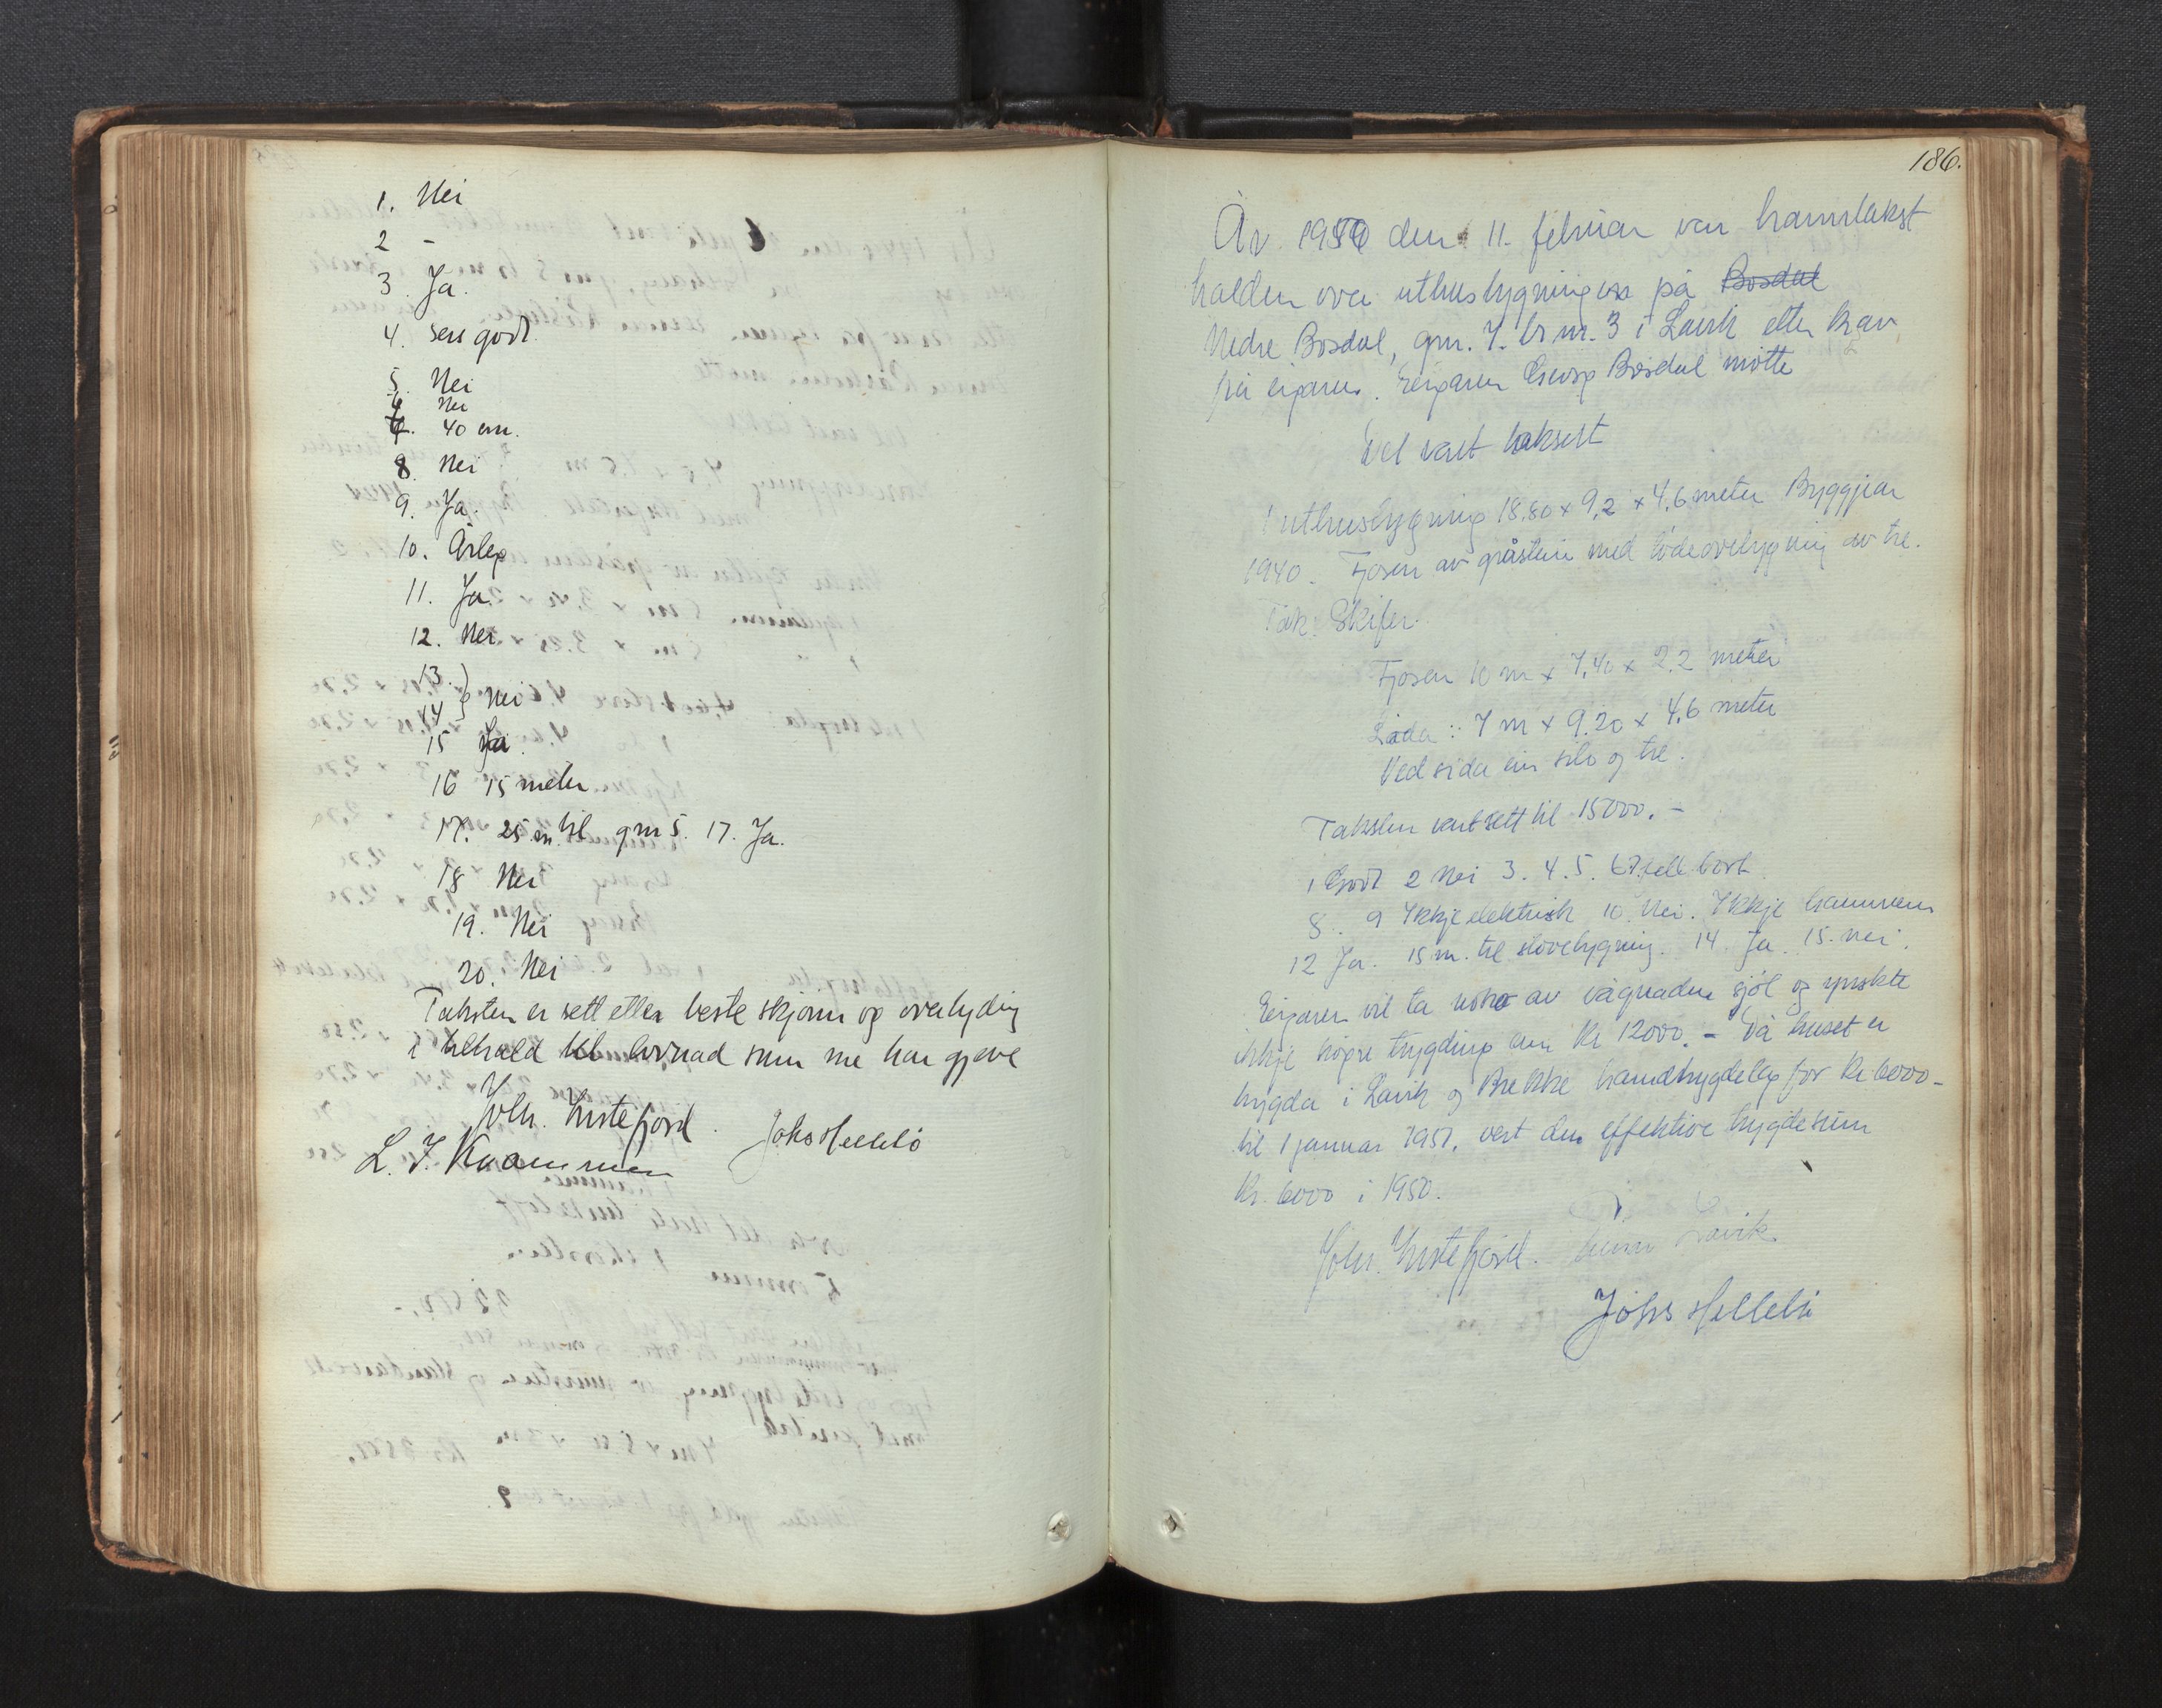 1. Nei
2 -
3. Ja.
4. sers godt.
5. Nei
6 Nei
7. 40 cm.
8. Nei
9. Ja.
10. Årleg
11. Ja.
12. Nei.
13.
14 } Nei
15 Ja.
16 15 meter
17. 25 m. til gnr 5. 17. Ja.
18 Nei
19. Nei
20. Nei
Taksten er sett etter beste skjønn og overtyding
i tilhald til lovnad som me har gjeve
Johs. Systefjord. Johs Hellebø
L. J. Kvammen
186.
År 1950 den 11. februar var branntakst
halden over uthusbygningen på Bosdal
Nedre Bosdal, gnr. 7. br nr. 3 i Lavik etter krav
frå eigaren. Eigaren Georg Bosdal møtte
Det vart taksert
1 uthusbygning 18.80 x 9,2 x 4,6 meter Byggjear
1940. Fjosen av gråstein med lödeovebygning av tre.
Tak: Skifer.
Fjosen 10 m x 7,40 x 2.2 meter
Löda: 7 m x 9.20 x 4,6 meter
Ved sida ein silo og tre.
Taksten vart sett til 15000.-
1 Godt 2 Nei 3. 4. 5. 6 7. fell bort
8. 9 Ikkje elektrisk 10. Nei. Ikkje brannvern
12 Ja. 15 m. til stovebygning. 14 Ja 15. nei.
Eigaren vil ta noko av vågnaden sjöl og ynskte
ikkje högre trygding enn kr 12000.- Då huset er
trygda i Lavik og Brekke brandtrygdelag for kr. 6000-
til 1 januar 1951. vert den effektive trygdesum
Kr. 6000 i 1950.
Johs. Systefjord. Lavik.
Johs Hellebö